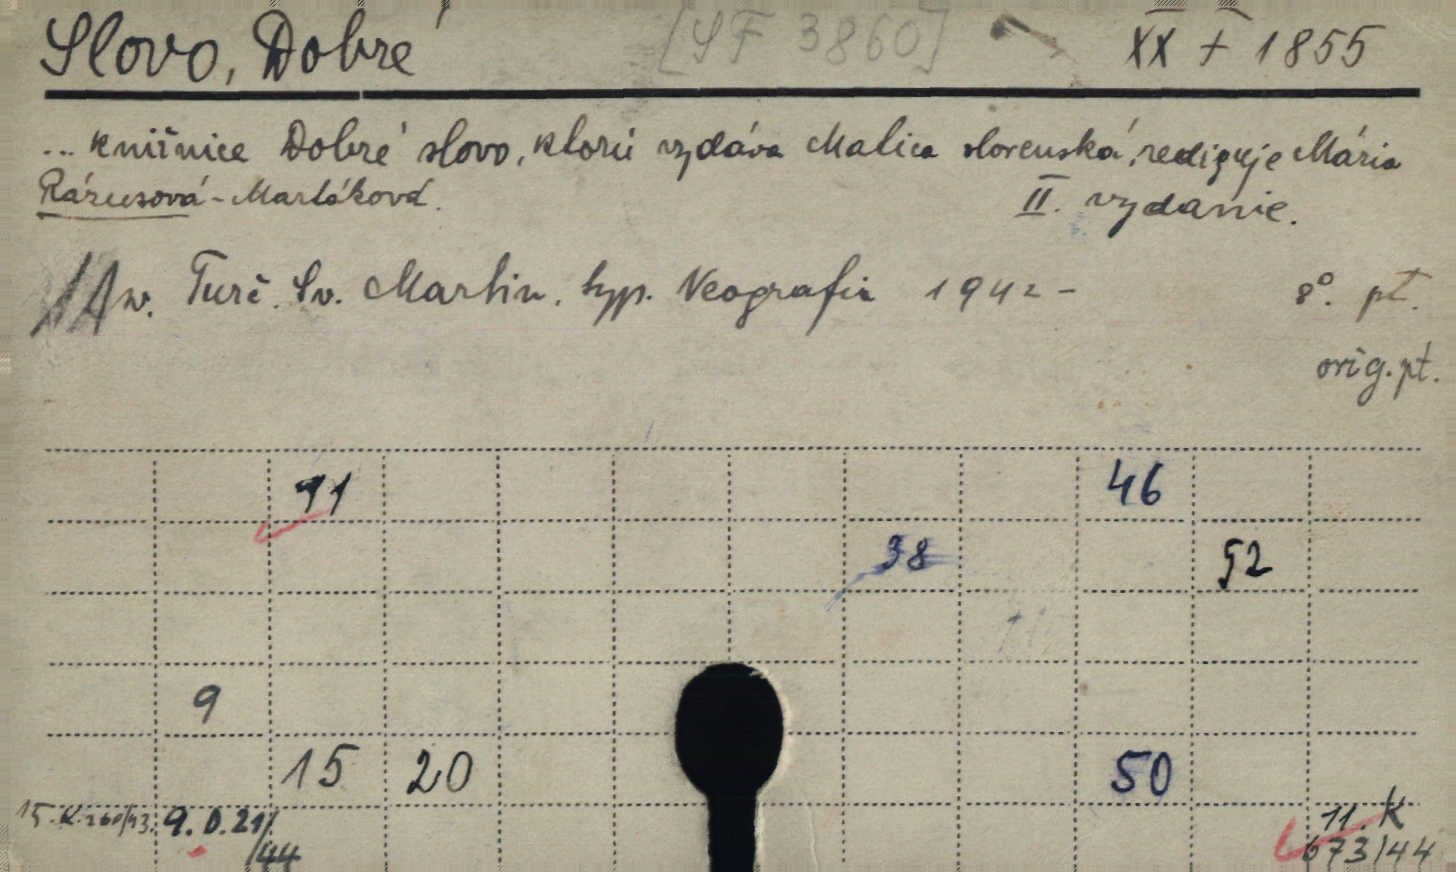 Slovo, Dobré [SF 3860] XX + 1855
... knižnice Dobré slovo, ktorú vydáva Matica slovenská, rediguje Mária
Rázusová-Martáková. II. vydanie.
Turč. Sv. Martin, typ. Neografia 1942 - 8°. pt.
orig. pt.
11 46
38 52
9
15 20 50
15.K.260/43. 9.D.21/ 11.K
/44 673/44